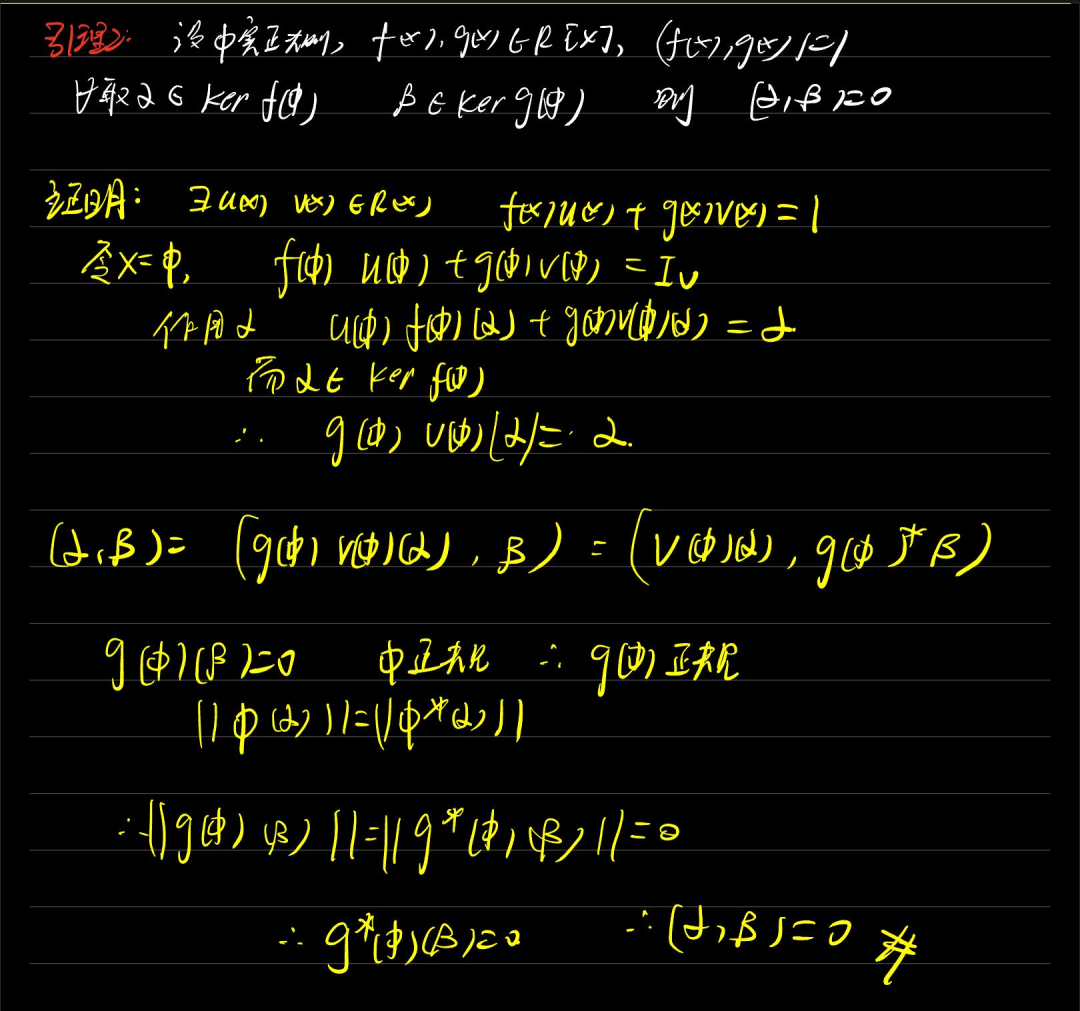 引理2: 设φ实正规, f(x), g(x) ∈ R[x], (f(x), g(x))=1
∀取α ∈ Ker f(φ) β ∈ Ker g(φ) 则 (α, β)=0
证明: ∃ u(x) v(x) ∈ R(x) f(x)u(x) + g(x)v(x) = 1
令x=φ, f(φ) u(φ) + g(φ) v(φ) = Iv
作用α u(φ) f(φ)(α) + g(φ)v(φ)(α) = α
而α ∈ Ker f(φ)
∴ g(φ) v(φ)(α) = α.
(α, β) = (g(φ) v(φ)(α), β) = (v(φ)(α), g(φ)*β)
g(φ)(β)=0 φ正规 ∴ g(φ)正规
||φ(α)||=||φ*(α)||
∴||g(φ)(β)||=||g*(φ)(β)||=0
∴ g*(φ)(β)=0 ∴(α, β)=0 #